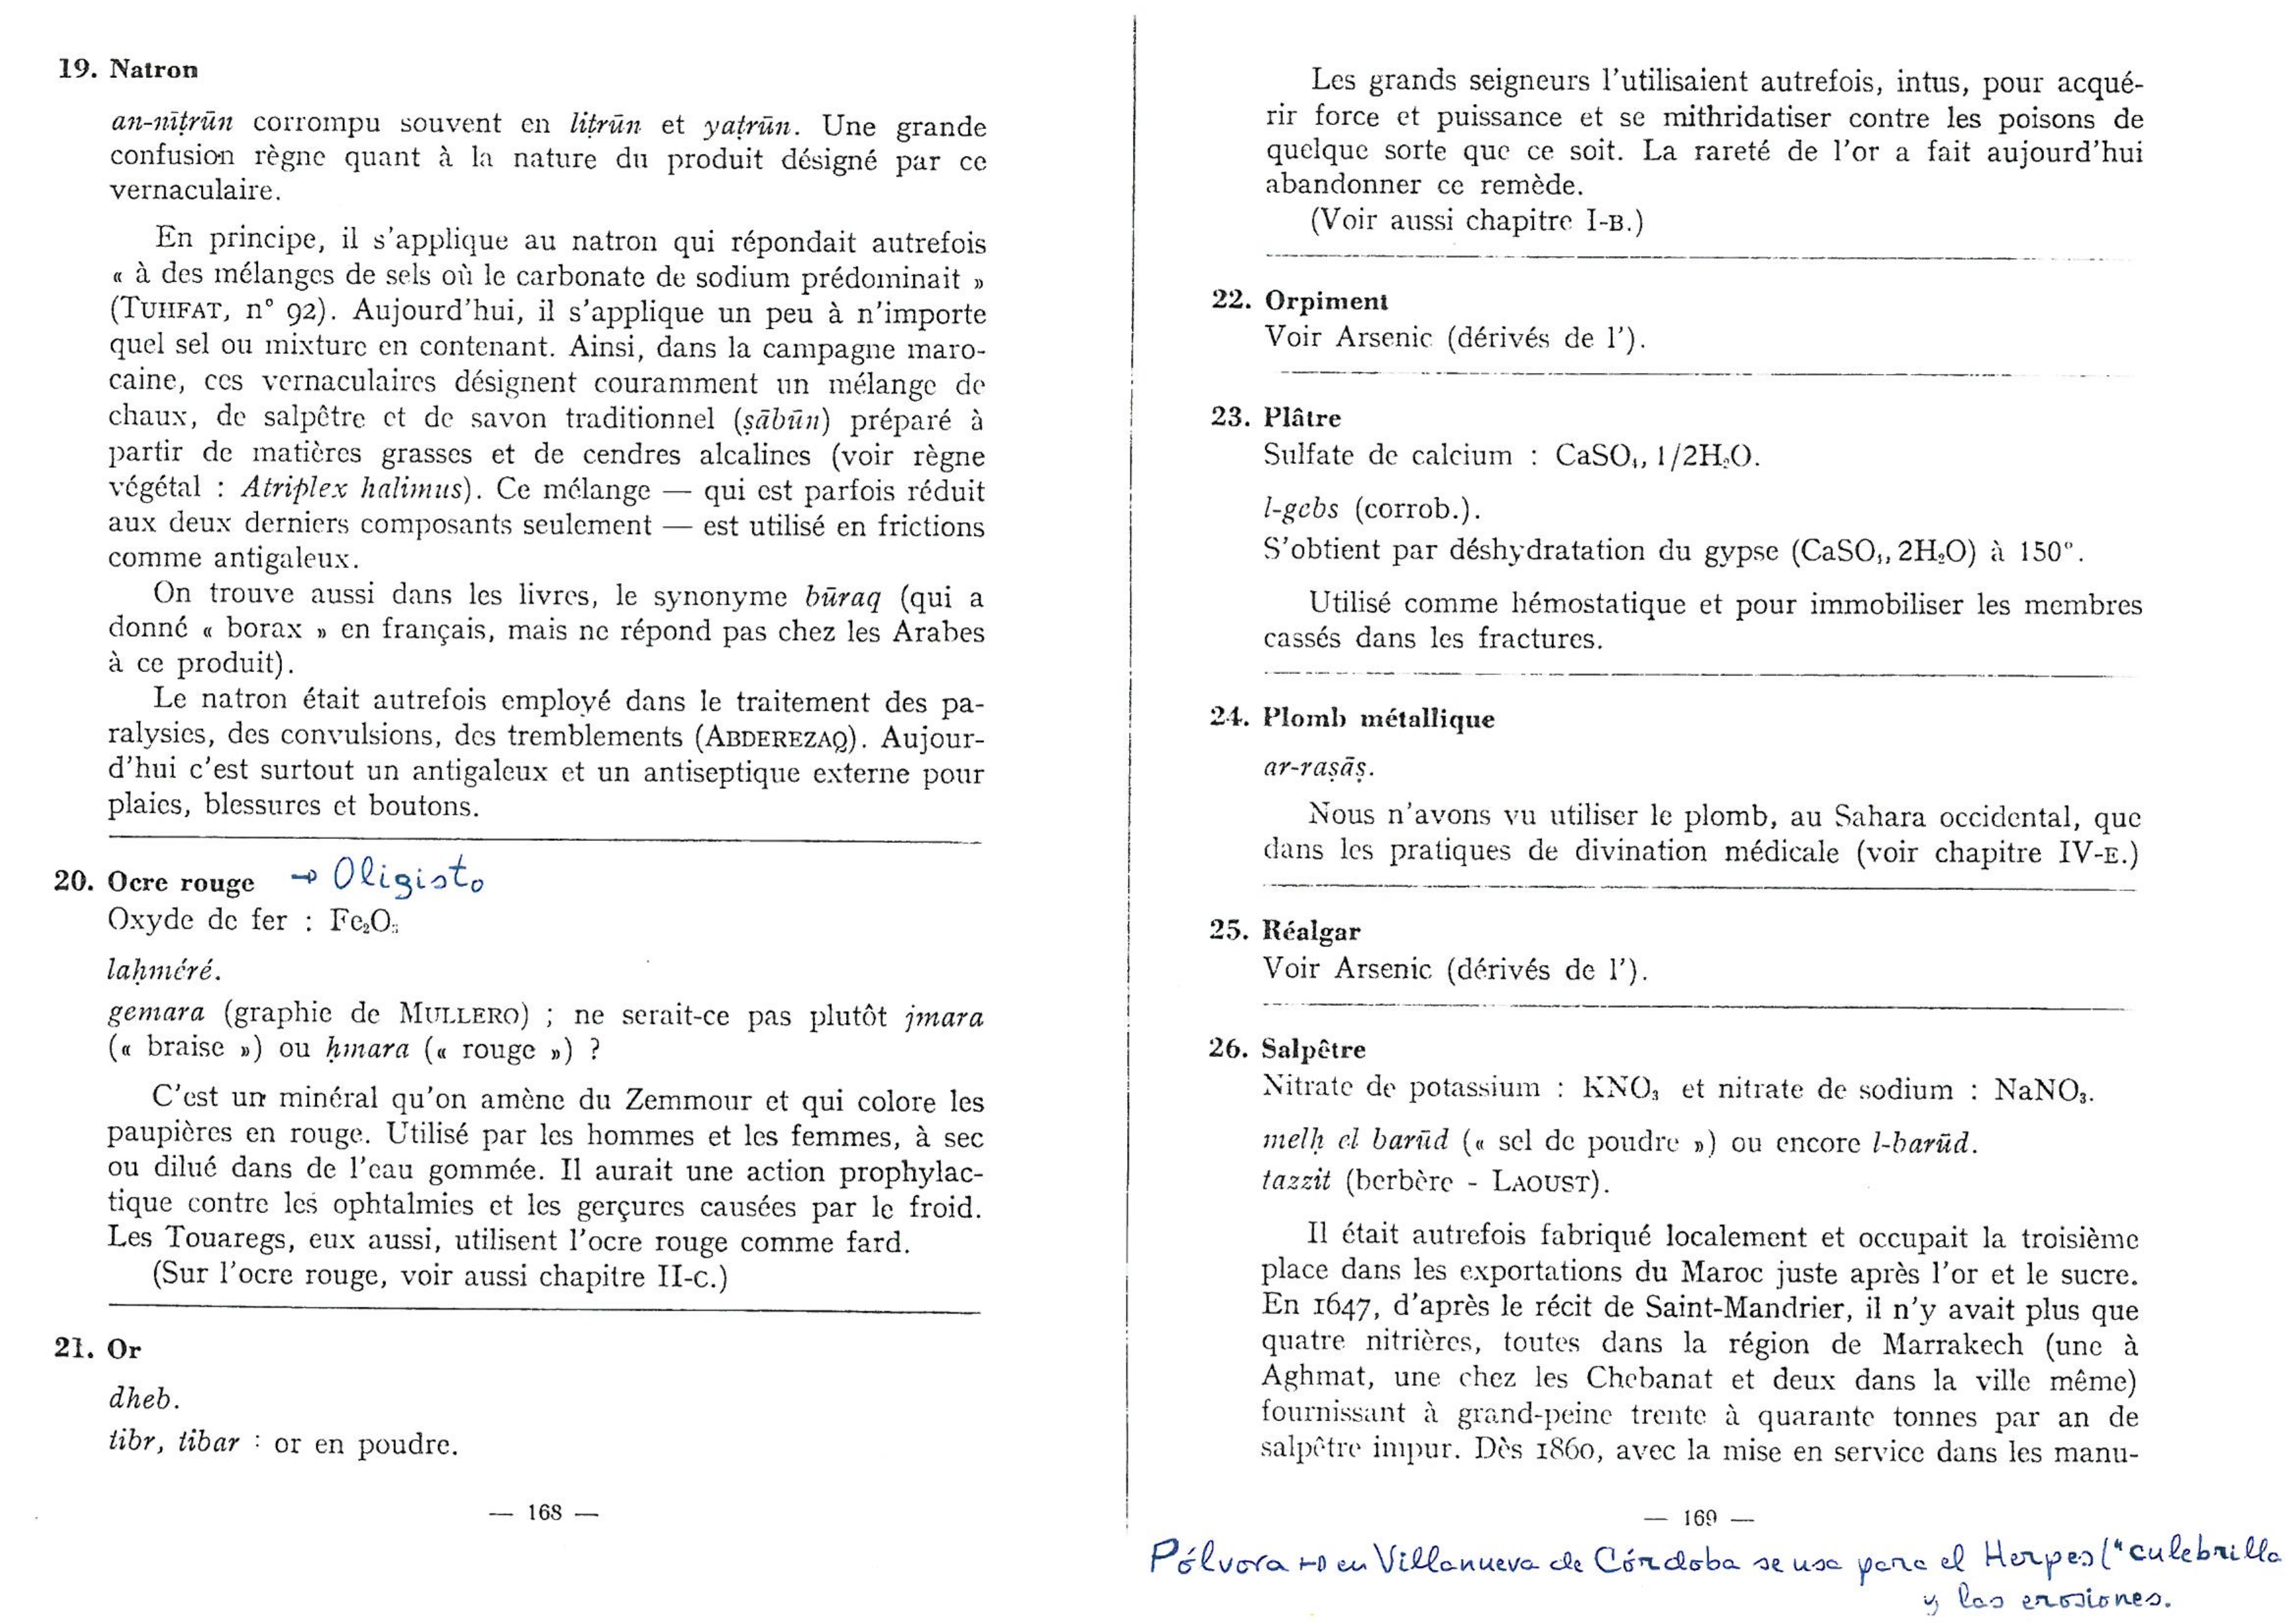 19. Natron
an-nīṭrūn corrompu souvent en liṭrūn et yaṭrūn. Une grande
confusion règne quant à la nature du produit désigné par ce
vernaculaire.
En principe, il s'applique au natron qui répondait autrefois
« à des mélanges de sels où le carbonate de sodium prédominait »
(TUHFAT, n° 92). Aujourd'hui, il s'applique un peu à n'importe
quel sel ou mixture en contenant. Ainsi, dans la campagne maro-
caine, ces vernaculaires désignent couramment un mélange de
chaux, de salpêtre et de savon traditionnel (ṣābūn) préparé à
partir de matières grasses et de cendres alcalines (voir règne
végétal : Atriplex halimus). Ce mélange — qui est parfois réduit
aux deux derniers composants seulement — est utilisé en frictions
comme antigaleux.
On trouve aussi dans les livres, le synonyme būraq (qui a
donné « borax » en français, mais ne répond pas chez les Arabes
à ce produit).
Le natron était autrefois employé dans le traitement des pa-
ralysies, des convulsions, des tremblements (ABDEREZAQ). Aujour-
d'hui c'est surtout un antigaleux et un antiseptique externe pour
plaies, blessures et boutons.
20. Ocre rouge → Oligisto
Oxyde de fer : Fe₂O₃
laḥméré.
gemara (graphie de MULLERO) ; ne serait-ce pas plutôt jmara
(« braise ») ou ḥmara (« rouge ») ?
C'est un minéral qu'on amène du Zemmour et qui colore les
paupières en rouge. Utilisé par les hommes et les femmes, à sec
ou dilué dans de l'eau gommée. Il aurait une action prophylac-
tique contre les ophtalmies et les gerçures causées par le froid.
Les Touaregs, eux aussi, utilisent l'ocre rouge comme fard.
(Sur l'ocre rouge, voir aussi chapitre II-C.)
21. Or
dheb.
tibr, tibar : or en poudre.
— 168 —
Les grands seigneurs l'utilisaient autrefois, intus, pour acqué-
rir force et puissance et se mithridatiser contre les poisons de
quelque sorte que ce soit. La rareté de l'or a fait aujourd'hui
abandonner ce remède.
(Voir aussi chapitre I-B.)
22. Orpiment
Voir Arsenic (dérivés de l').
23. Plâtre
Sulfate de calcium : CaSO₄, 1/2H₂O.
l-gebs (corrob.).
S'obtient par déshydratation du gypse (CaSO₄, 2H₂O) à 150°.
Utilisé comme hémostatique et pour immobiliser les membres
cassés dans les fractures.
24. Plomb métallique
ar-raṣāṣ.
Nous n'avons vu utiliser le plomb, au Sahara occidental, que
dans les pratiques de divination médicale (voir chapitre IV-E.)
25. Réalgar
Voir Arsenic (dérivés de l').
26. Salpêtre
Nitrate de potassium : KNO₃ et nitrate de sodium : NaNO₃.
melḥ el barūd (« sel de poudre ») ou encore l-barūd.
tazzit (berbère - LAOUST).
Il était autrefois fabriqué localement et occupait la troisième
place dans les exportations du Maroc juste après l'or et le sucre.
En 1647, d'après le récit de Saint-Mandrier, il n'y avait plus que
quatre nitrières, toutes dans la région de Marrakech (une à
Aghmat, une chez les Chebanat et deux dans la ville même)
fournissant à grand-peine trente à quarante tonnes par an de
salpêtre impur. Dès 1860, avec la mise en service dans les manu-
— 169 —
Pólvora → en Villanueva de Córdoba se usa para el Herpes ("culebrilla
y las erosiones.